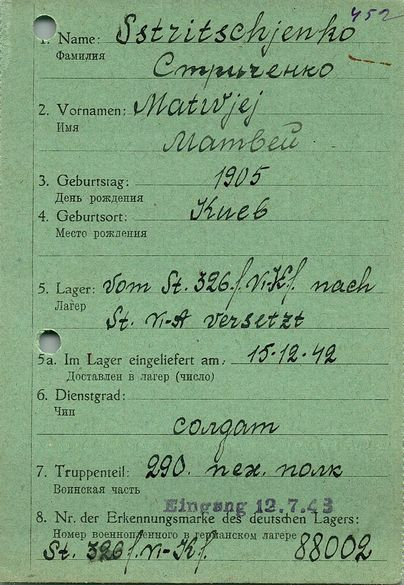 452
1. Name: Sstritschjenko
Фамилия
Стриченко
2. Vornamen: Matwjej
Имя
Матвей
3. Geburtstag: 1905
День рождения
4. Geburtsort: Киев
Место рождения
5. Lager: vom St. 326 f. VI-K f. nach
Лагер
St. VI-A versetzt
5a. Im Lager eingeliefert am: 15.12.42
Доставлен в лагер (число)
6. Dienstgrad:
Чин
солдат
7. Truppenteil: 290. пех. полк
Воинская часть
Eingang 12.7.43
8. Nr. der Erkennungsmarke des deutschen Lagers:
Номер военнопленного в германском лагере
St. 326 f. VI-K f. 88002